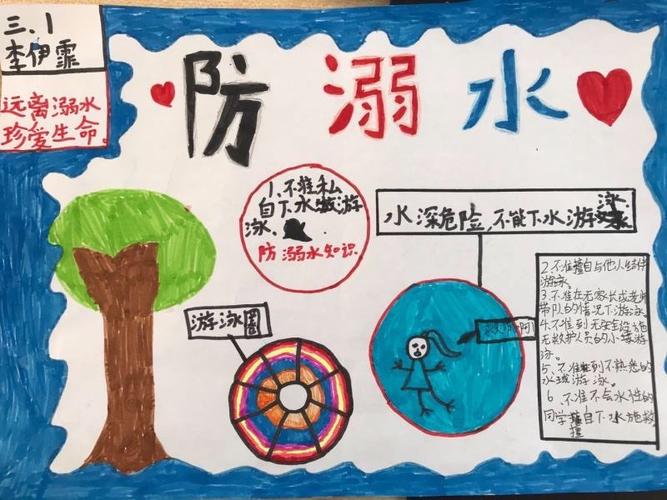 三、1
李伊霏
远离溺水
珍爱生命。
防 溺 水
1、不准私
自下水游
泳、
防溺水知识
水深危险,不能下水游
游泳圈
救命啊
2、不准擅自与他人结伴
游泳
3、不准在无家长或老师
带队的情况下游泳
4、不准到无安全设施
无救护人员的水域游
泳。
5、不准到不熟悉的
水域游泳。
6、不准不会水性的
同学擅自下水施救